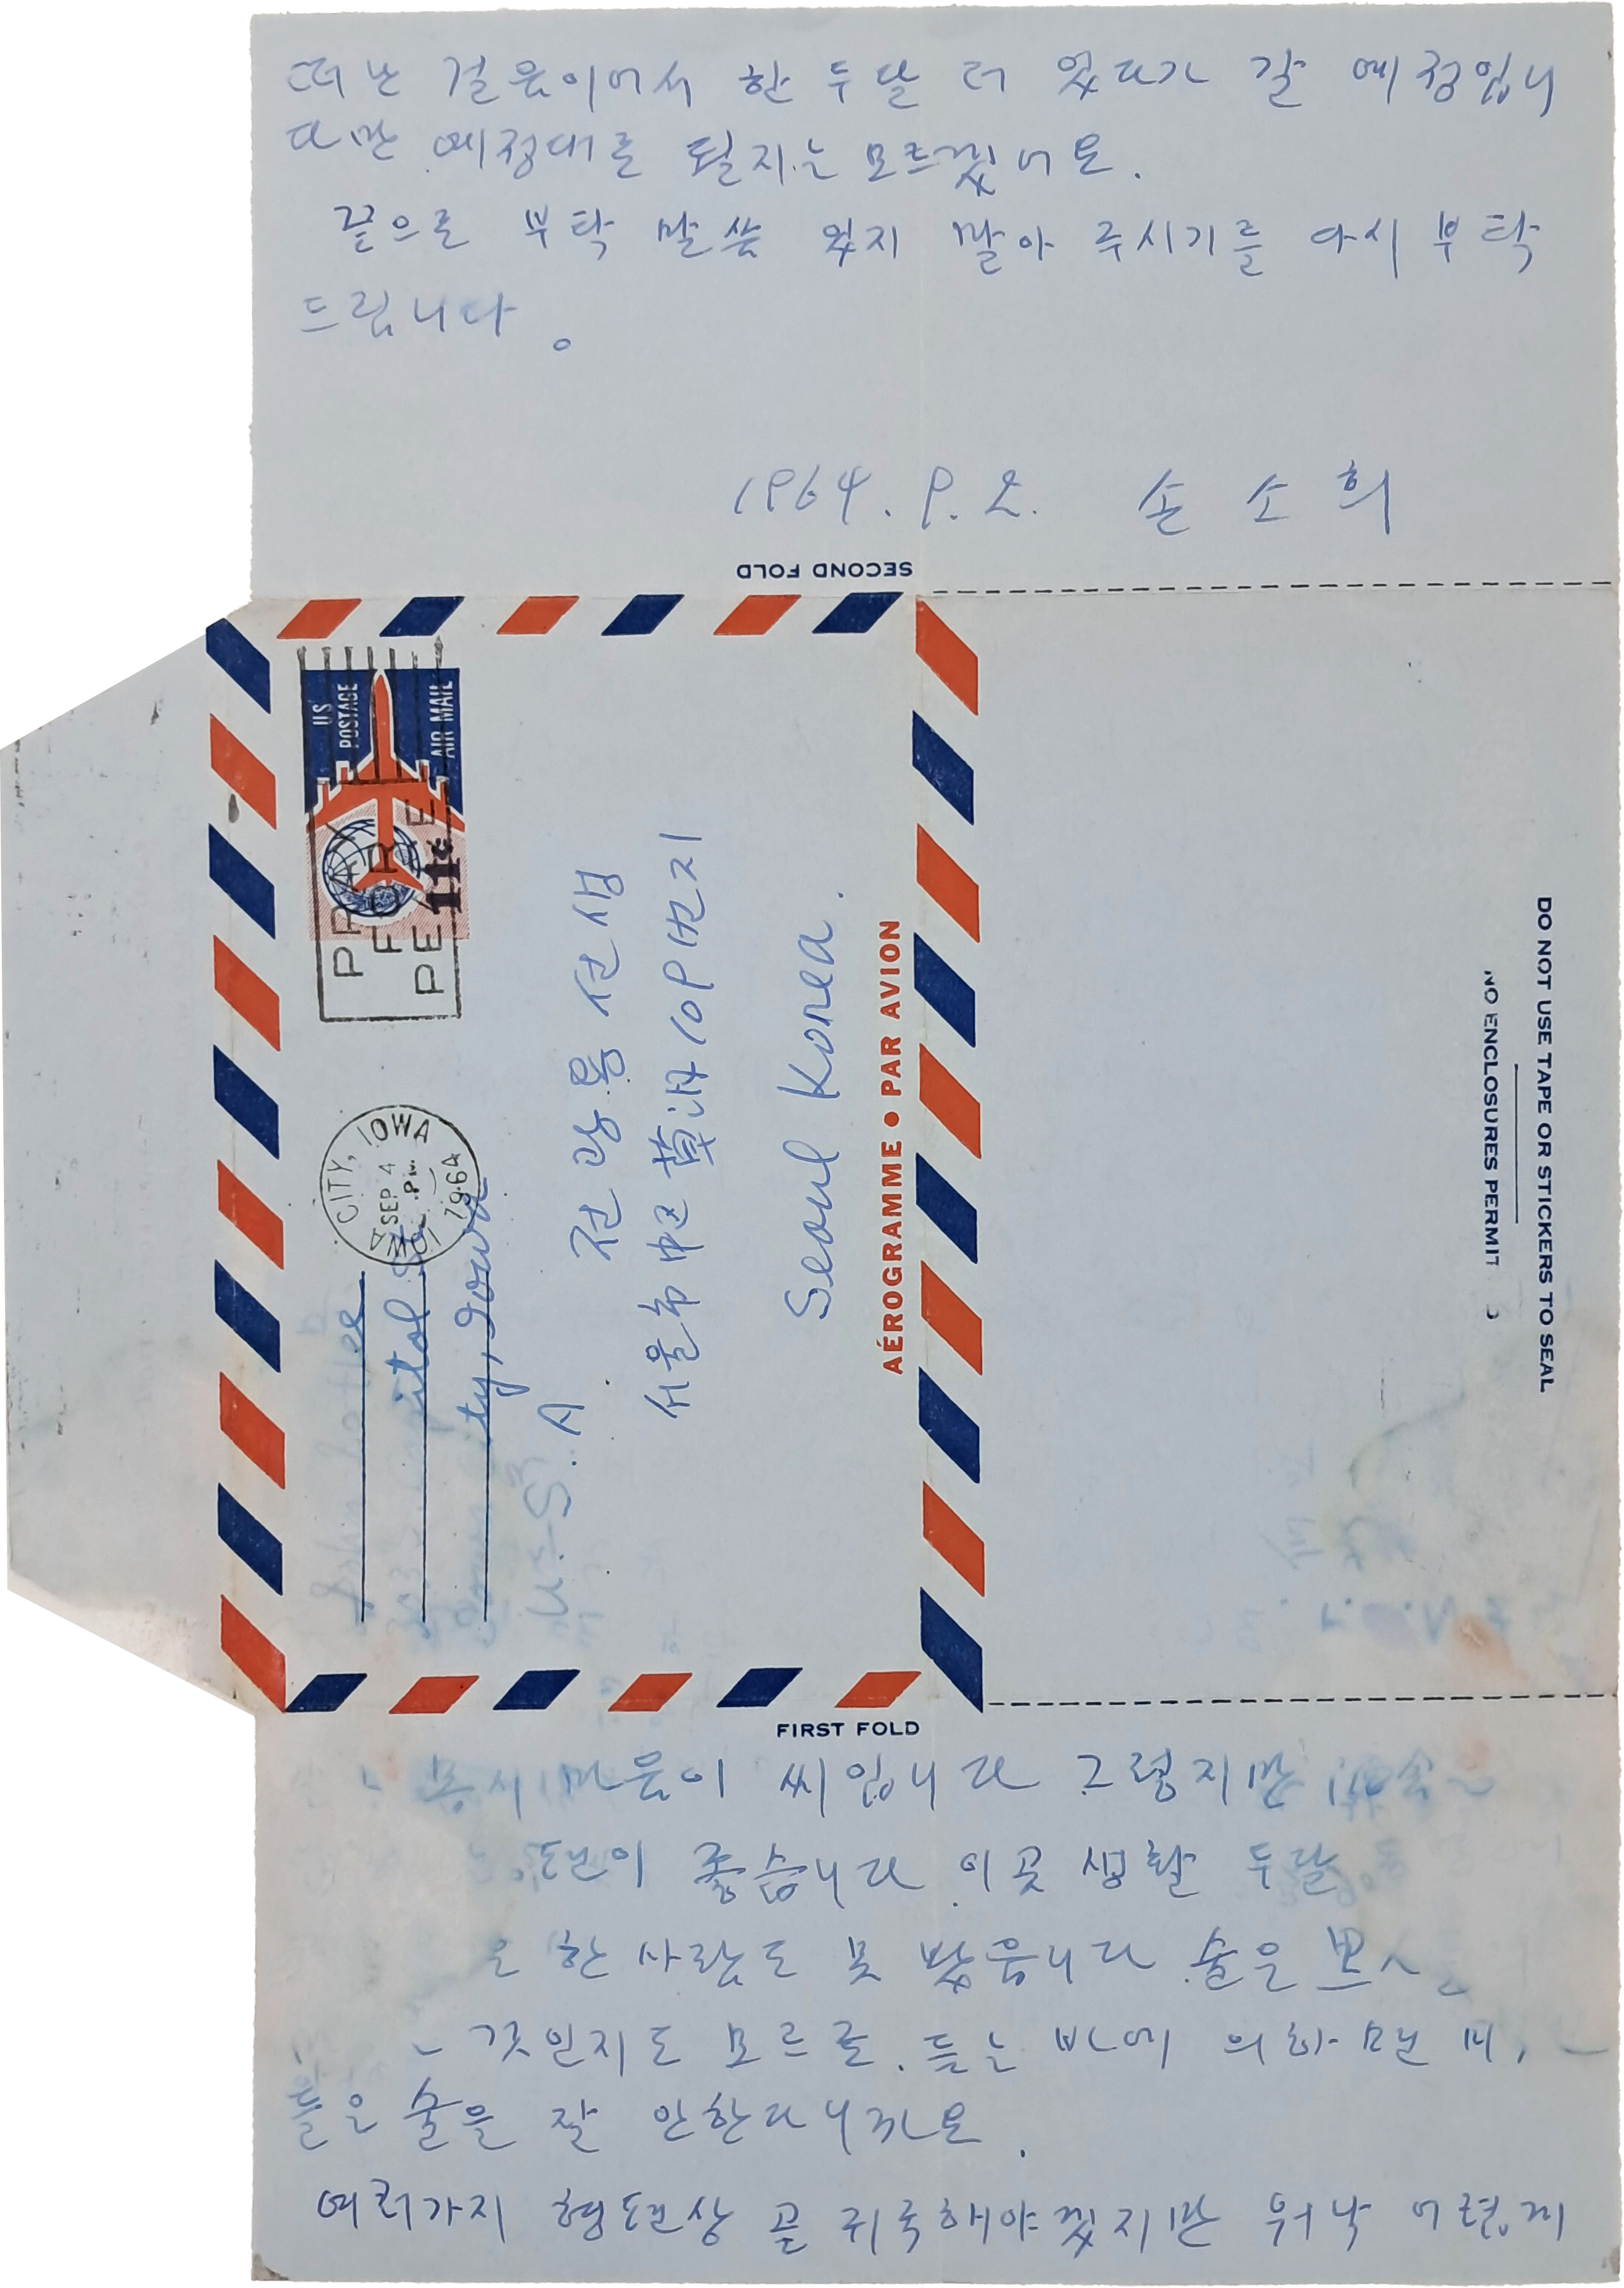 떠난 걸음이어서 한 두달 더 있다가 갈 예정입니
다만 예정대로 될지는 모르겠어요.
끝으로 부탁 말씀 잊지 말아 주시기를 다시 부탁
드립니다.
1964. 9. 2. 손소희
SECOND FOLD
US POSTAGE
AIR MAIL
11¢
PRAY
FOR
PE
IOWA CITY, IOWA
SEP 4
PM
1964
U.S.A
전광용 선생
서울市 中区 草洞 109번지
Seoul Korea.
AÉROGRAMME • PAR AVION
DO NOT USE TAPE OR STICKERS TO SEAL
NO ENCLOSURES PERMIT
FIRST FOLD
마음이 씨입니다 그렇지만
좋습니다 이곳 생활 두달
한 사람도 못 봤읍니다 술은
것인지도 모르로. 듣는 바에 의하면
들은 술을 잘 안한다니까요.
여러가지 형편상 곧 귀국해야겠지만 워낙 어렵게